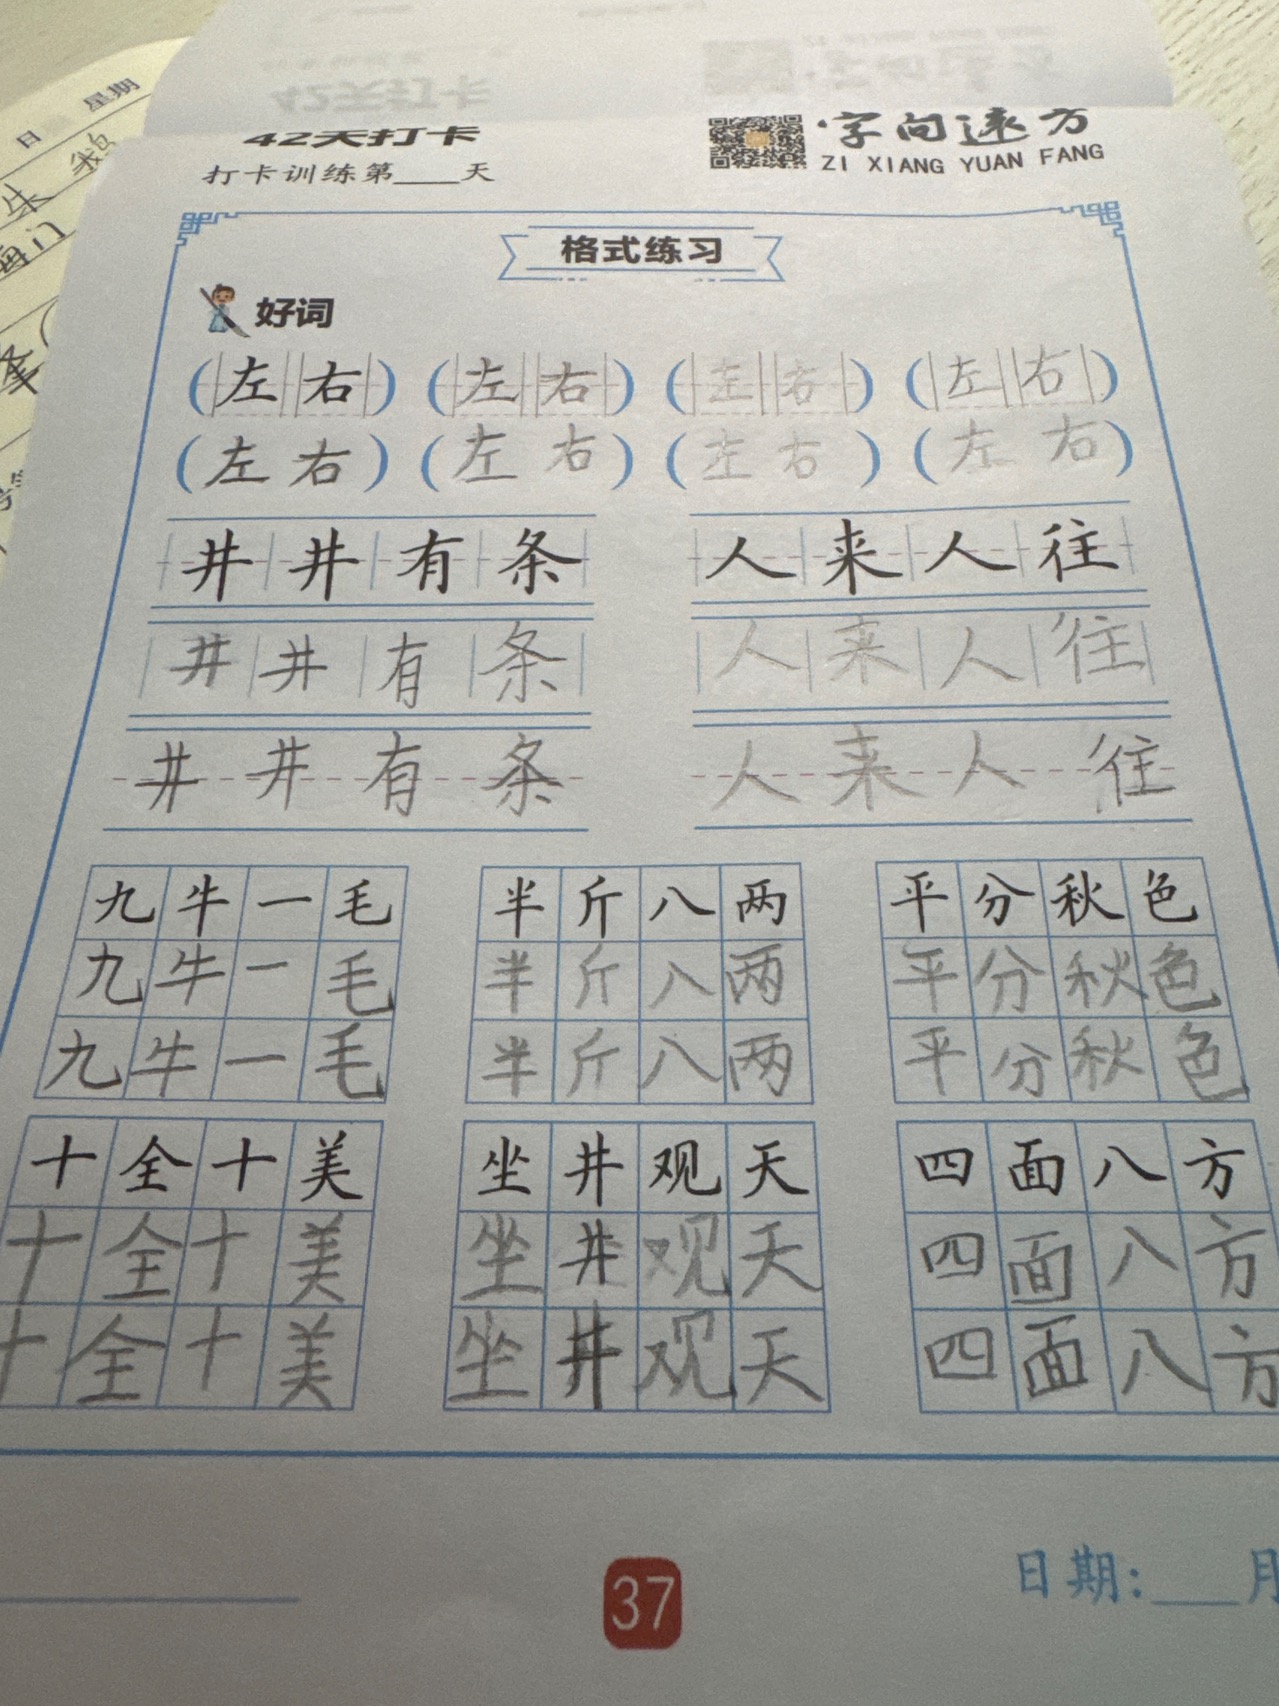 日 星期
42天打卡
打卡训练第____天
字向远方
ZI XIANG YUAN FANG
格式练习
好词
(左右) (左右) (左右) (左右)
(左右) (左右) (左右) (左右)
井井有条 人来人往
井井有条 人来人往
井井有条 人来人往
九牛一毛 半斤八两 平分秋色
九牛一毛 半斤八两 平分秋色
九牛一毛 半斤八两 平分秋色
十全十美 坐井观天 四面八方
十全十美 坐井观天 四面八方
十全十美 坐井观天 四面八方
37
日期:____月